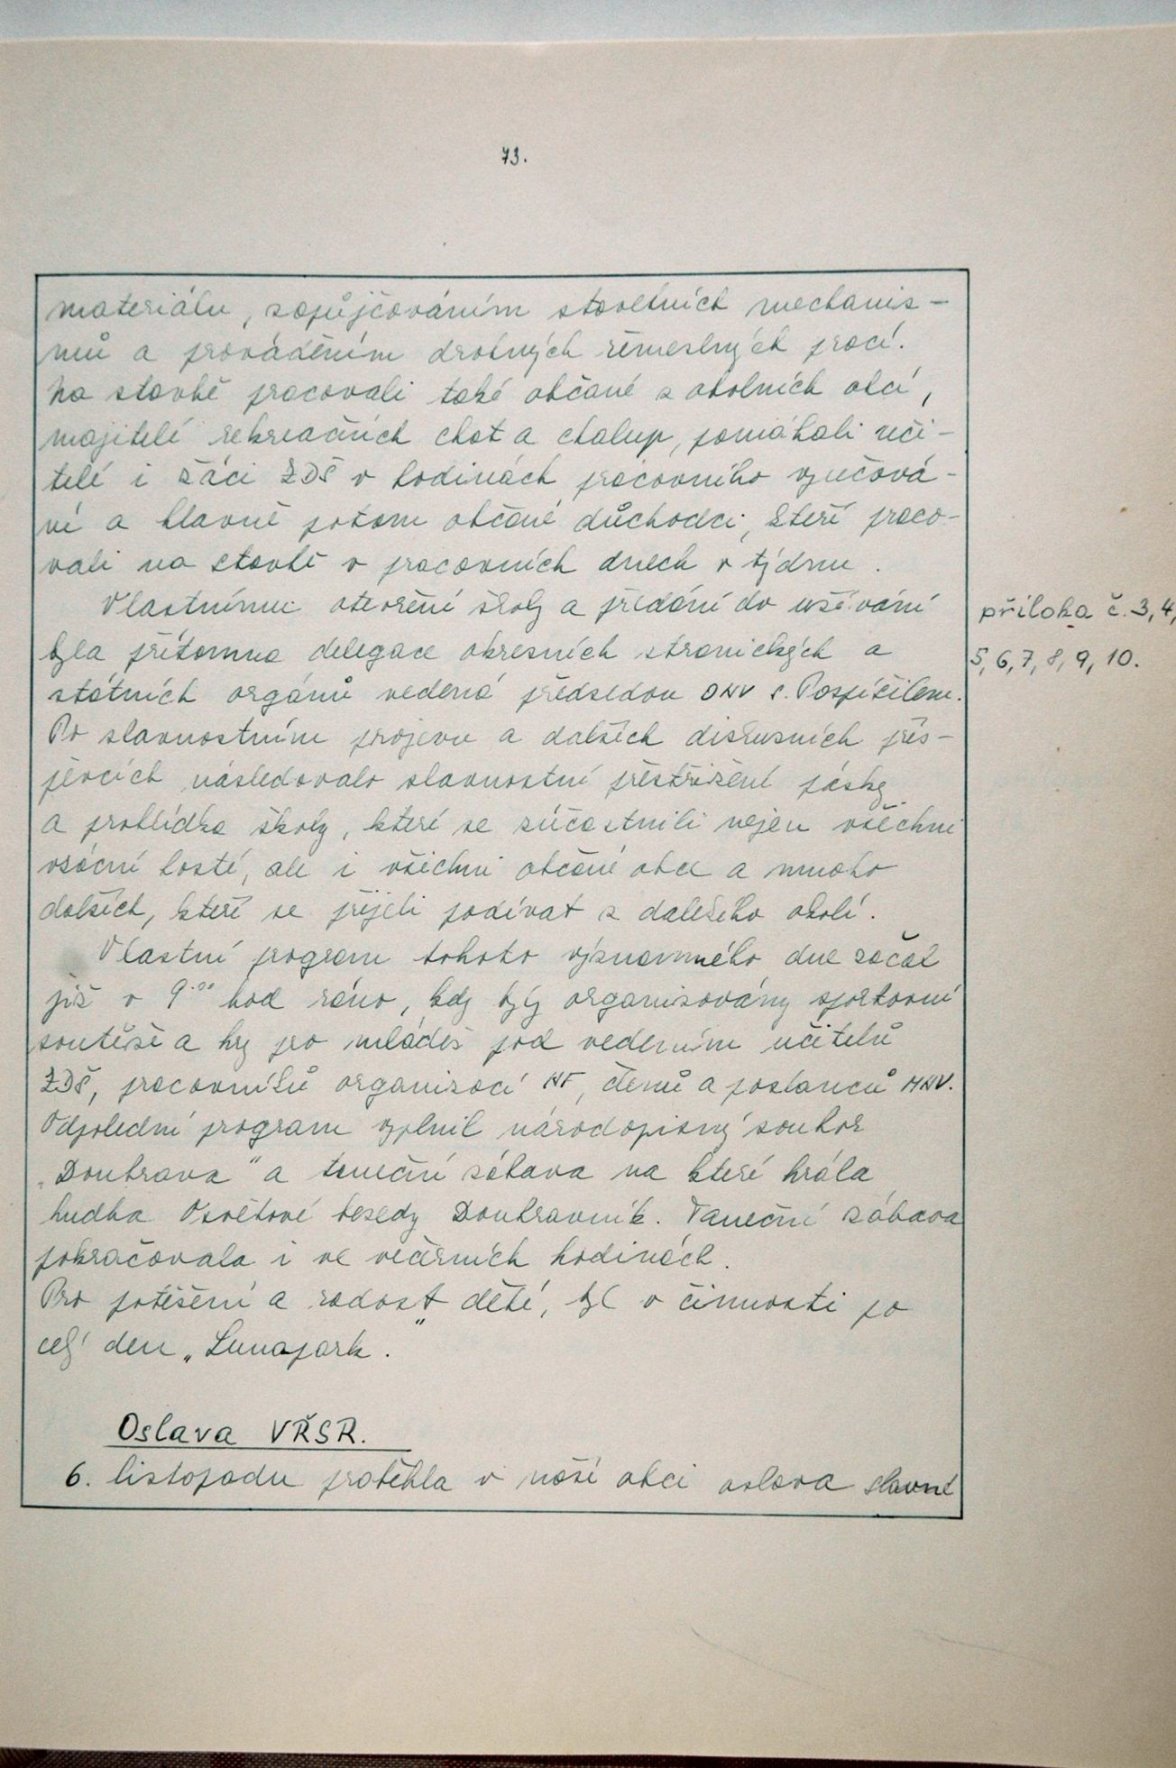 73.
materiálu, zapůjčováním stavebních mechanis-
mů a prováděním drobných řemeslných prací.
Na stavbě pracovali také občané z okolních obcí,
majitelé rekreačních chat a chalup, pomáhali uči-
telé i žáci ZDŠ v hodinách pracovního vyučová-
ní a hlavně potom občané důchodci, kteří praco-
vali na stavbě v pracovních dnech v týdnu.
Vlastnímu otevření školy a předání do užívání
příloha č. 3, 4,
byla přítomna delegace okresních stranických a
5, 6, 7, 8, 9, 10.
státních orgánů vedená předsedou ONV s. Pospíšilem.
Po slavnostním projevu a dalších diskusních přís-
pěvcích následovalo slavnostní přestřižení pásky
a prohlídka školy, které se zúčastnili nejen všechni
vzácní hosté, ale i všichni občané obce a mnoho
dalších, kteří se přijeli podívat z dalešího okolí.
Vlastní program tohoto významného dne začal
již v 9.00 hod ráno, kdy byly organizovány sportovní
soutěže a hry pro mládež pod vedením učitelů
ZDŠ, pracovníků organizací NF, členů a poslanců MNV.
Odpolední program vyplnil národopisný soubor
„Doubrava" a taneční zábava na které hrála
hudba Osvětové besedy Doubravník. Taneční zábava
pokračovala i ve večerních hodinách.
Pro potěšení a radost dětí, byl v činnosti po
celý den „Lunapark".
Oslava VŘSR.
6. listopadu proběhla v naší obci oslava slavné